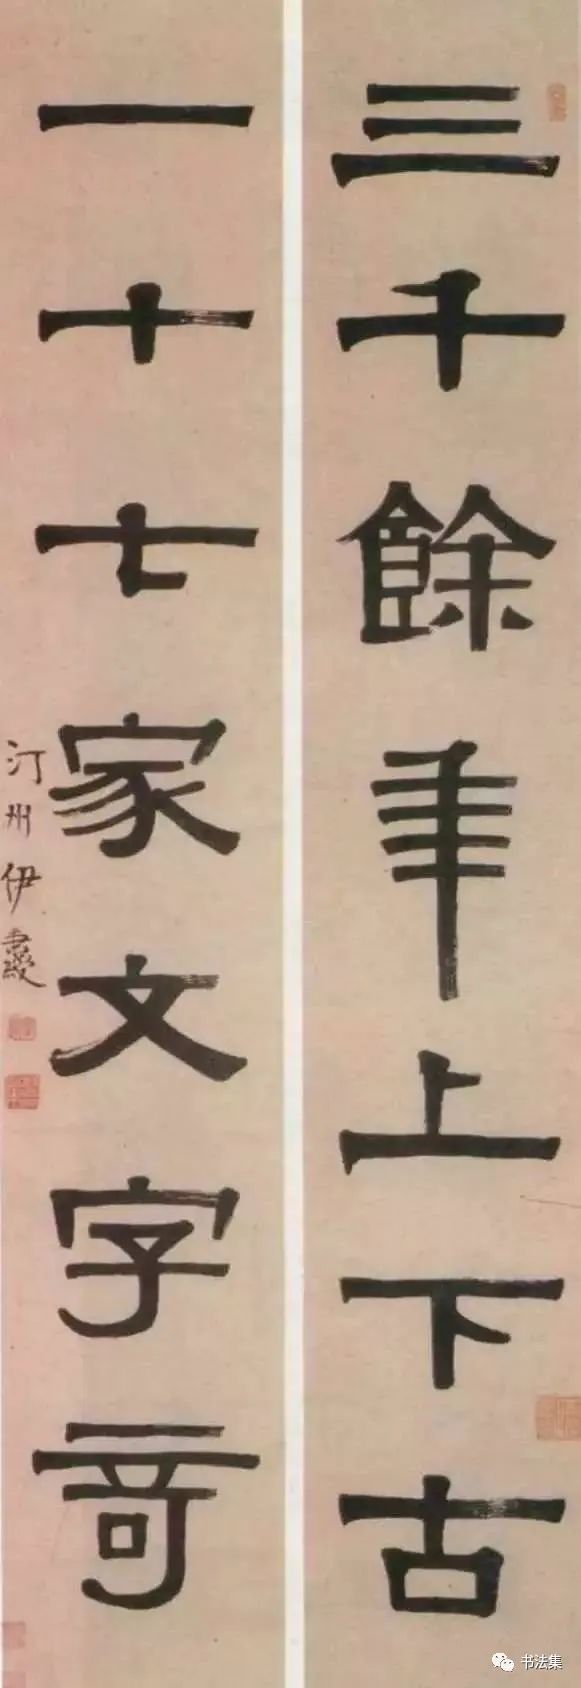 三千餘年上下古
一十七家文字奇
汀州伊秉綬
书法集